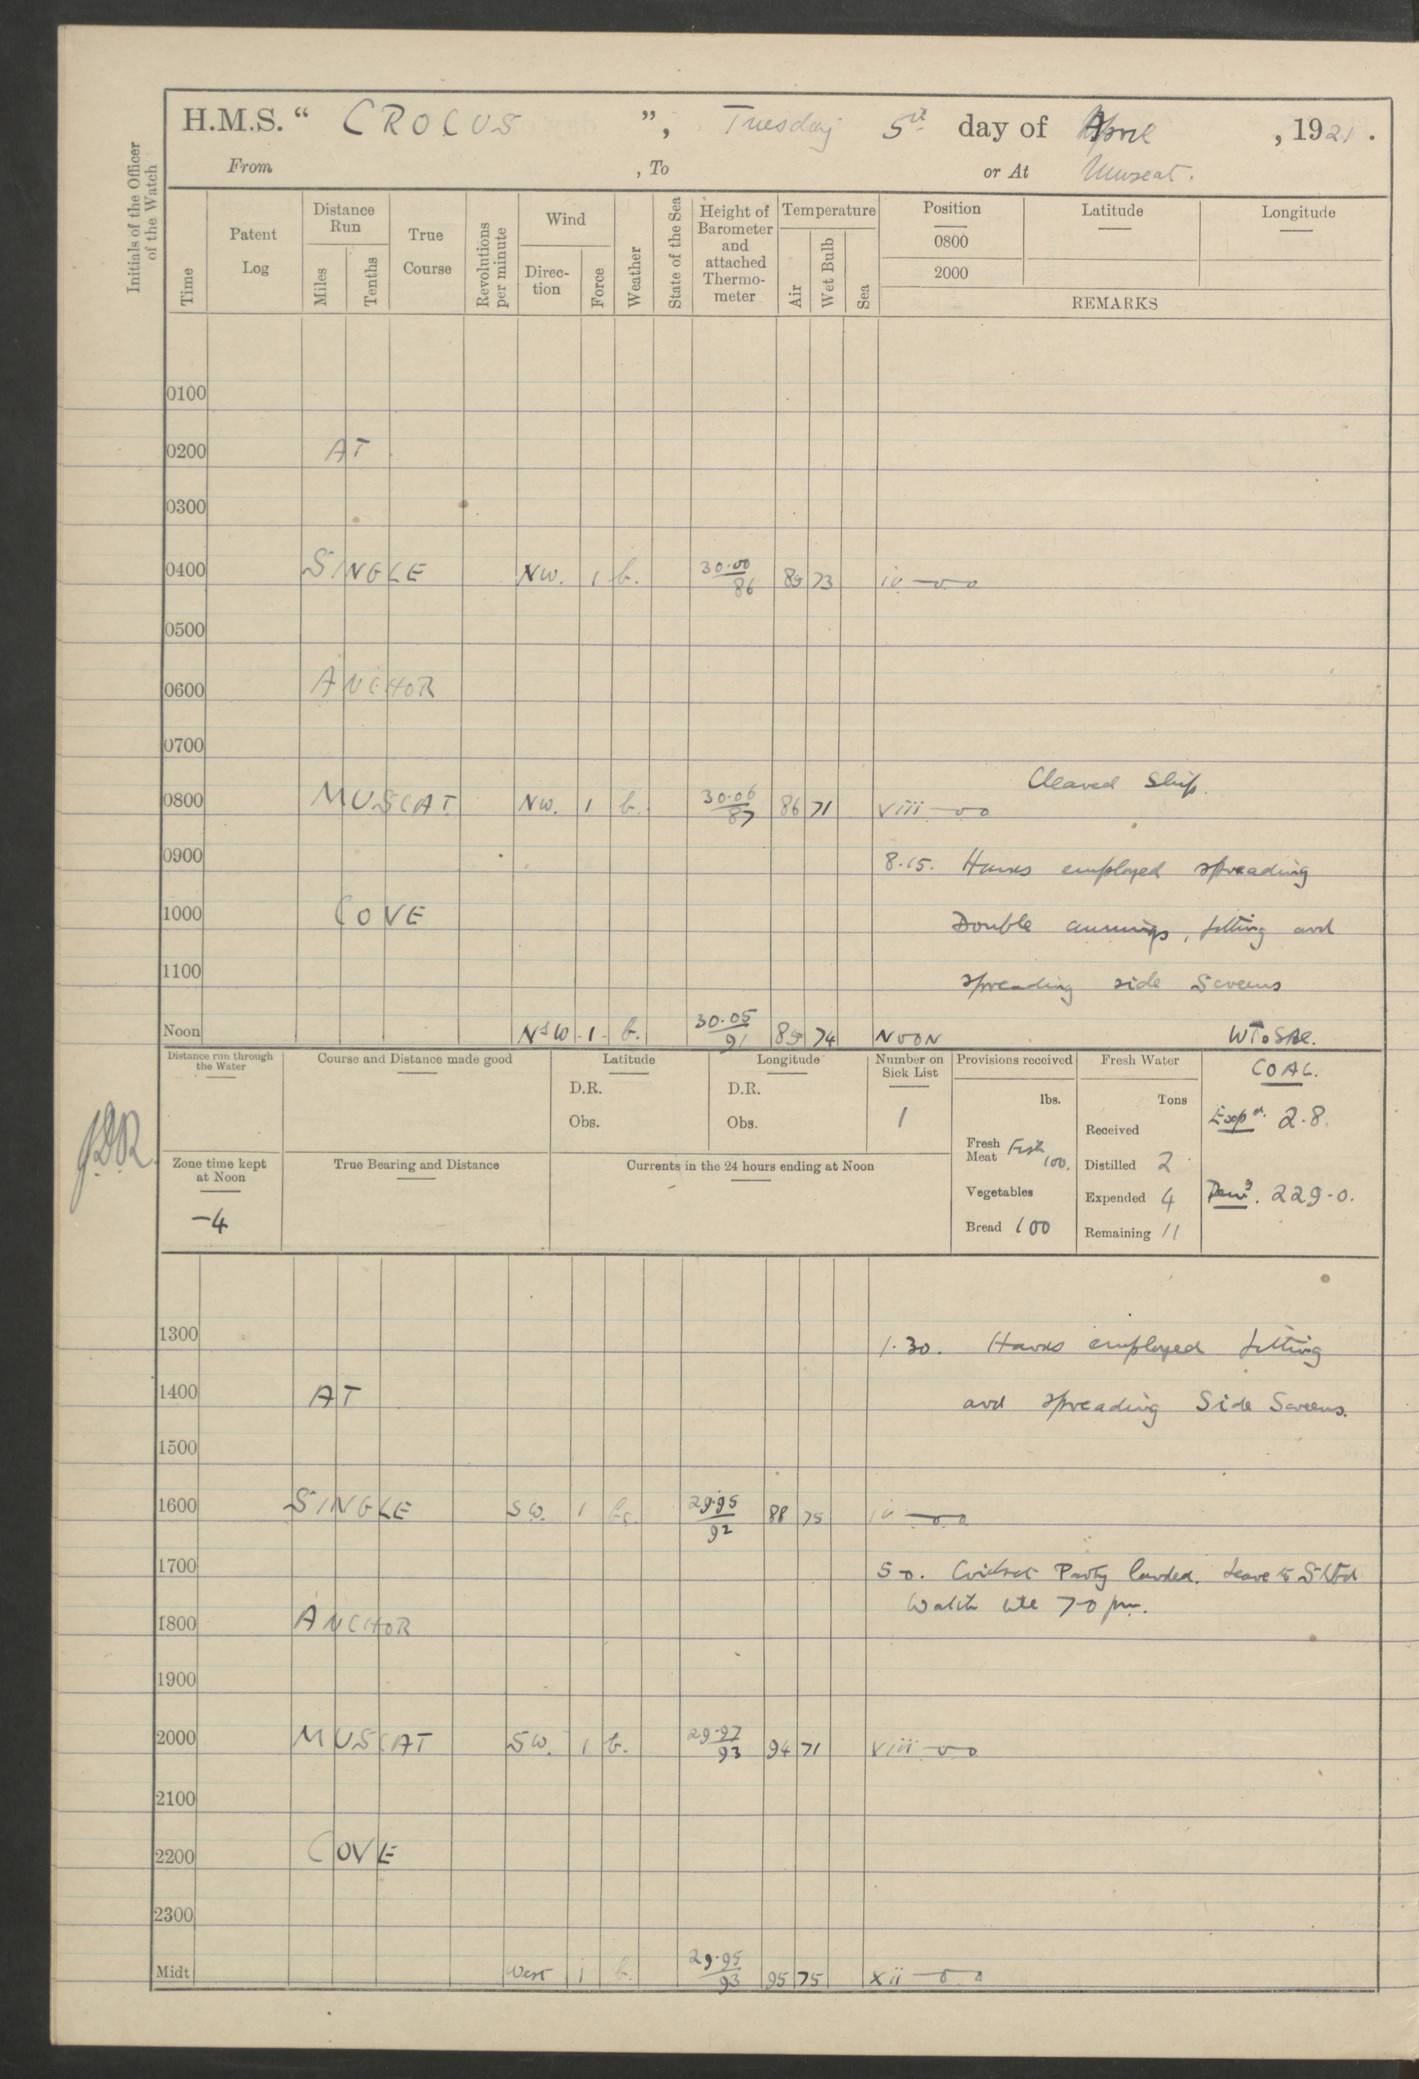 H.M.S. " CROCUS ", Tuesday 5th day of April, 1921.
From , To or At Muscat.
Initials of the Officer of the Watch
Time
Patent Log
Distance Run
Miles
Tenths
True Course
Revolutions per minute
Wind
Direction
Force
Weather
State of the Sea
Height of Barometer and attached Thermometer
Temperature
Air
Wet Bulb
Sea
Position Latitude Longitude
0800
2000
REMARKS
0100
0200 AT
0300
0400 SINGLE NW. 1 b. 30.00/86 85 73 iv—o o
0500
0600 ANCHOR
0700
Cleared Ship.
0800 MUSCAT NW. 1 b. 30.06/87 86 71 viii—o o
0900 8.15. Hands employed spreading
1000 COVE Double awnings, fitting and
1100 spreading side Screens
Noon NdW 1 b. 30.05/91 85 74 NOON
Distance run through the Water
Course and Distance made good
Latitude
D.R.
Obs.
Longitude
D.R.
Obs.
Number on Sick List
1
Provisions received
lbs.
Fresh Meat Fish 100.
Vegetables
Bread 100
Fresh Water
Tons
Received
Distilled 2
Expended 4
Remaining 11
COAL.
Expd. 2.8.
Remg. 229.0.
Zone time kept at Noon
-4
True Bearing and Distance
Currents in the 24 hours ending at Noon
1300 1.30. Hands employed fitting
1400 AT and spreading Side Screens.
1500
1600 SINGLE SW. 1 bc. 29.95/92 88 75 iv—o o
1700 5-0. Cricket Party landed. Leave to Stbd
Watch till 7-0 pm.
1800 ANCHOR
1900
2000 MUSCAT SW. 1 b. 29.97/93 94 71 viii—o o
2100
2200 COVE
2300
Midt West 1 b. 29.95/93 95 75 xii—o o